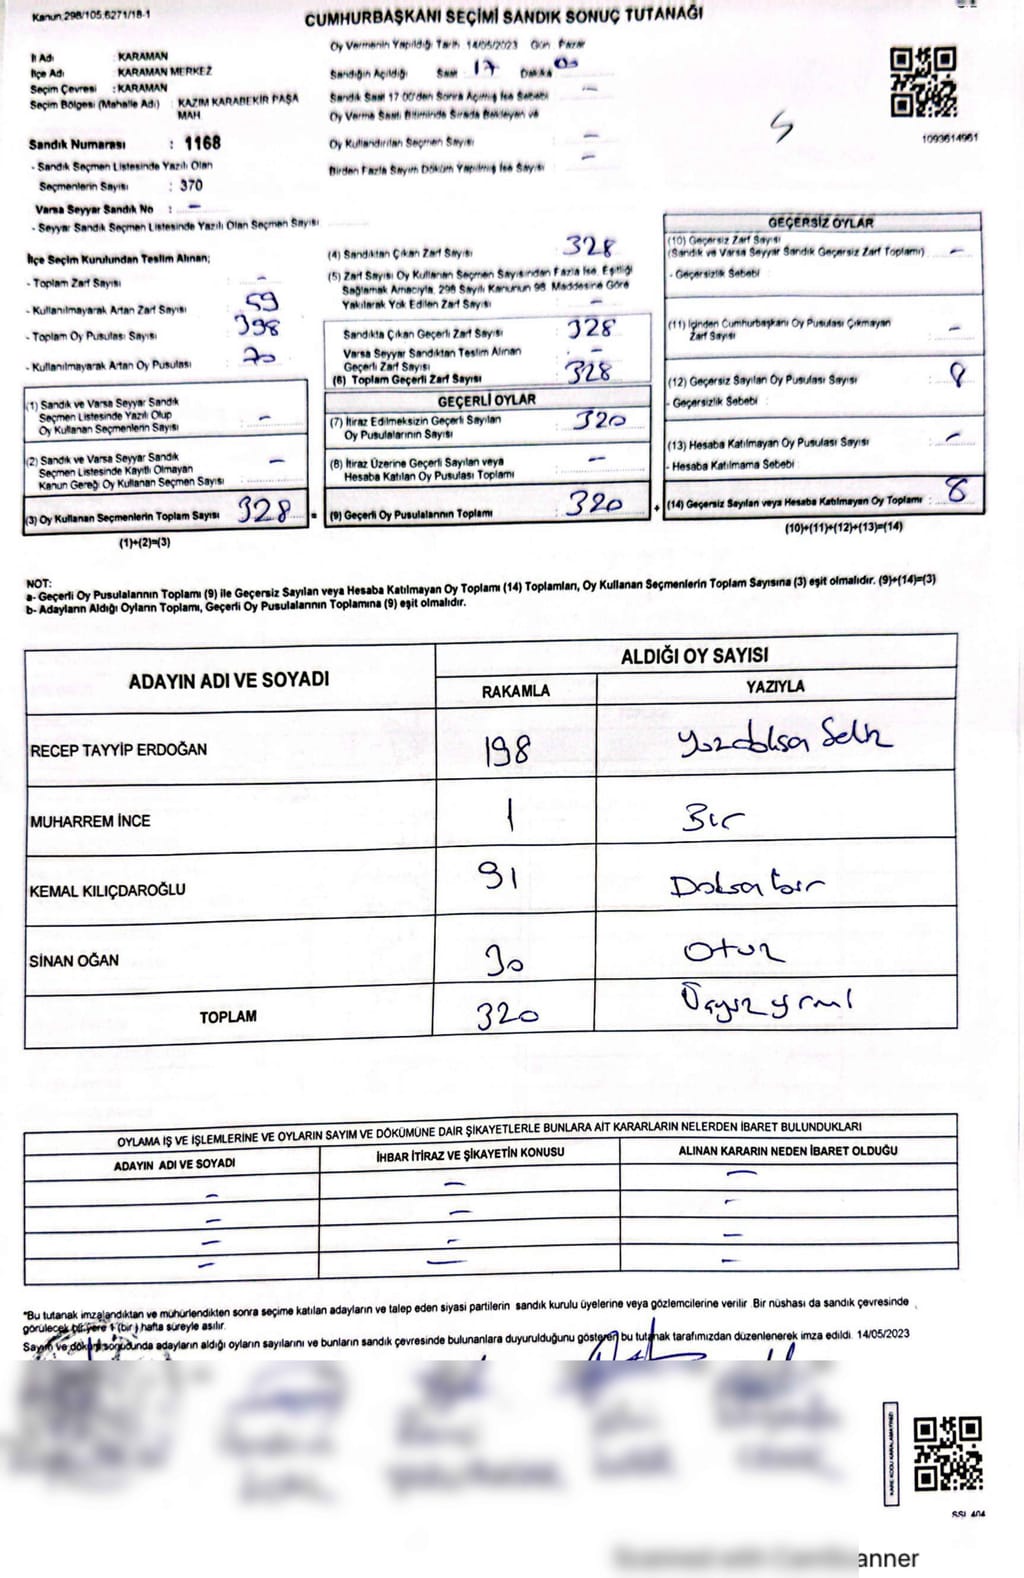 Kanun:298/105.6271/18-1
CUMHURBAŞKANI SEÇİMİ SANDIK SONUÇ TUTANAĞI
İl Adı : KARAMAN
İlçe Adı : KARAMAN MERKEZ
Seçim Çevresi : KARAMAN
Seçim Bölgesi (Mahalle Adı) : KAZIM KARABEKİR PAŞA
MAH
Sandık Numarası : 1168
- Sandık Seçmen Listesinde Yazılı Olan
Seçmenlerin Sayısı : 370
Varsa Seyyar Sandık No : —
- Seyyar Sandık Seçmen Listesinde Yazılı Olan Seçmen Sayısı
Oy Vermenin Yapıldığı Tarih 14/05/2023 Gün Pazar
Sandığın Açıldığı Saat 17 Dakika 00
Sandık Saat 17:00'den Sonra Açılmış İse Sebebi —
Oy Verme Saati Bitiminde Sırada Bekleyen ve
Oy Kullandırılan Seçmen Sayısı —
Birden Fazla Sayım Döküm Yapılmış İse Sayısı —
1093614961
İlçe Seçim Kurulundan Teslim Alınan;
- Toplam Zarf Sayısı : —
- Kullanılmayarak Artan Zarf Sayısı : 59
- Toplam Oy Pusulası Sayısı : 398
- Kullanılmayarak Artan Oy Pusulası : 70
(1) Sandık ve Varsa Seyyar Sandık
Seçmen Listesinde Yazılı Olup
Oy Kullanan Seçmenlerin Sayısı : —
(2) Sandık ve Varsa Seyyar Sandık
Seçmen Listesinde Kayıtlı Olmayan
Kanun Gereği Oy Kullanan Seçmen Sayısı : —
(3) Oy Kullanan Seçmenlerin Toplam Sayısı 328 =
(1)+(2)=(3)
(4) Sandıktan Çıkan Zarf Sayısı : 328
(5) Zarf Sayısı Oy Kullanan Seçmen Sayısından Fazla İse, Eşitliği
Sağlamak Amacıyla, 298 Sayılı Kanunun 98. Maddesine Göre
Yakılarak Yok Edilen Zarf Sayısı : —
Sandıkta Çıkan Geçerli Zarf Sayısı : 328
Varsa Seyyar Sandıktan Teslim Alınan
Geçerli Zarf Sayısı : —
(6) Toplam Geçerli Zarf Sayısı : 328
GEÇERLİ OYLAR
(7) İtiraz Edilmeksizin Geçerli Sayılan
Oy Pusulalarının Sayısı : 320
(8) İtiraz Üzerine Geçerli Sayılan veya
Hesaba Katılan Oy Pusulası Toplamı : —
(9) Geçerli Oy Pusulalarının Toplamı : 320 +
GEÇERSİZ OYLAR
(10) Geçersiz Zarf Sayısı
(Sandık ve Varsa Seyyar Sandık Geçersiz Zarf Toplamı) : —
- Geçersizlik Sebebi :
(11) İçinden Cumhurbaşkanı Oy Pusulası Çıkmayan
Zarf Sayısı : —
(12) Geçersiz Sayılan Oy Pusulası Sayısı : 8
- Geçersizlik Sebebi :
(13) Hesaba Katılmayan Oy Pusulası Sayısı : —
- Hesaba Katılmama Sebebi :
(14) Geçersiz Sayılan veya Hesaba Katılmayan Oy Toplamı : 8
(10)+(11)+(12)+(13)=(14)
NOT:
a- Geçerli Oy Pusulalarının Toplamı (9) ile Geçersiz Sayılan veya Hesaba Katılmayan Oy Toplamı (14) Toplamları, Oy Kullanan Seçmenlerin Toplam Sayısına (3) eşit olmalıdır. (9)+(14)=(3)
b- Adayların Aldığı Oyların Toplamı, Geçerli Oy Pusulalarının Toplamına (9) eşit olmalıdır.
ADAYIN ADI VE SOYADI ALDIĞI OY SAYISI
RAKAMLA YAZIYLA
RECEP TAYYİP ERDOĞAN 198
MUHARREM İNCE 1 Bir
KEMAL KILIÇDAROĞLU 91 Doksanbir
SİNAN OĞAN 30 Otuz
TOPLAM 320 Üçyüzyirmi
OYLAMA İŞ VE İŞLEMLERİNE VE OYLARIN SAYIM VE DÖKÜMÜNE DAİR ŞİKAYETLERLE BUNLARA AİT KARARLARIN NELERDEN İBARET BULUNDUKLARI
ADAYIN ADI VE SOYADI İHBAR İTİRAZ VE ŞİKAYETİN KONUSU ALINAN KARARIN NEDEN İBARET OLDUĞU
— — —
— — —
— — —
— — —
"Bu tutanak imzalandıktan ve mühürlendikten sonra seçime katılan adayların ve talep eden siyasi partilerin sandık kurulu üyelerine veya gözlemcilerine verilir. Bir nüshası da sandık çevresinde
görülecek bir yere 1 (bir) hafta süreyle asılır.
Sayım ve döküm sonucunda adayların aldığı oyların sayılarını ve bunların sandık çevresinde bulunanlara duyurulduğunu gösteren bu tutanak tarafımızdan düzenlenerek imza edildi. 14/05/2023
KARE KODU KARALAMAYINIZ!
anner